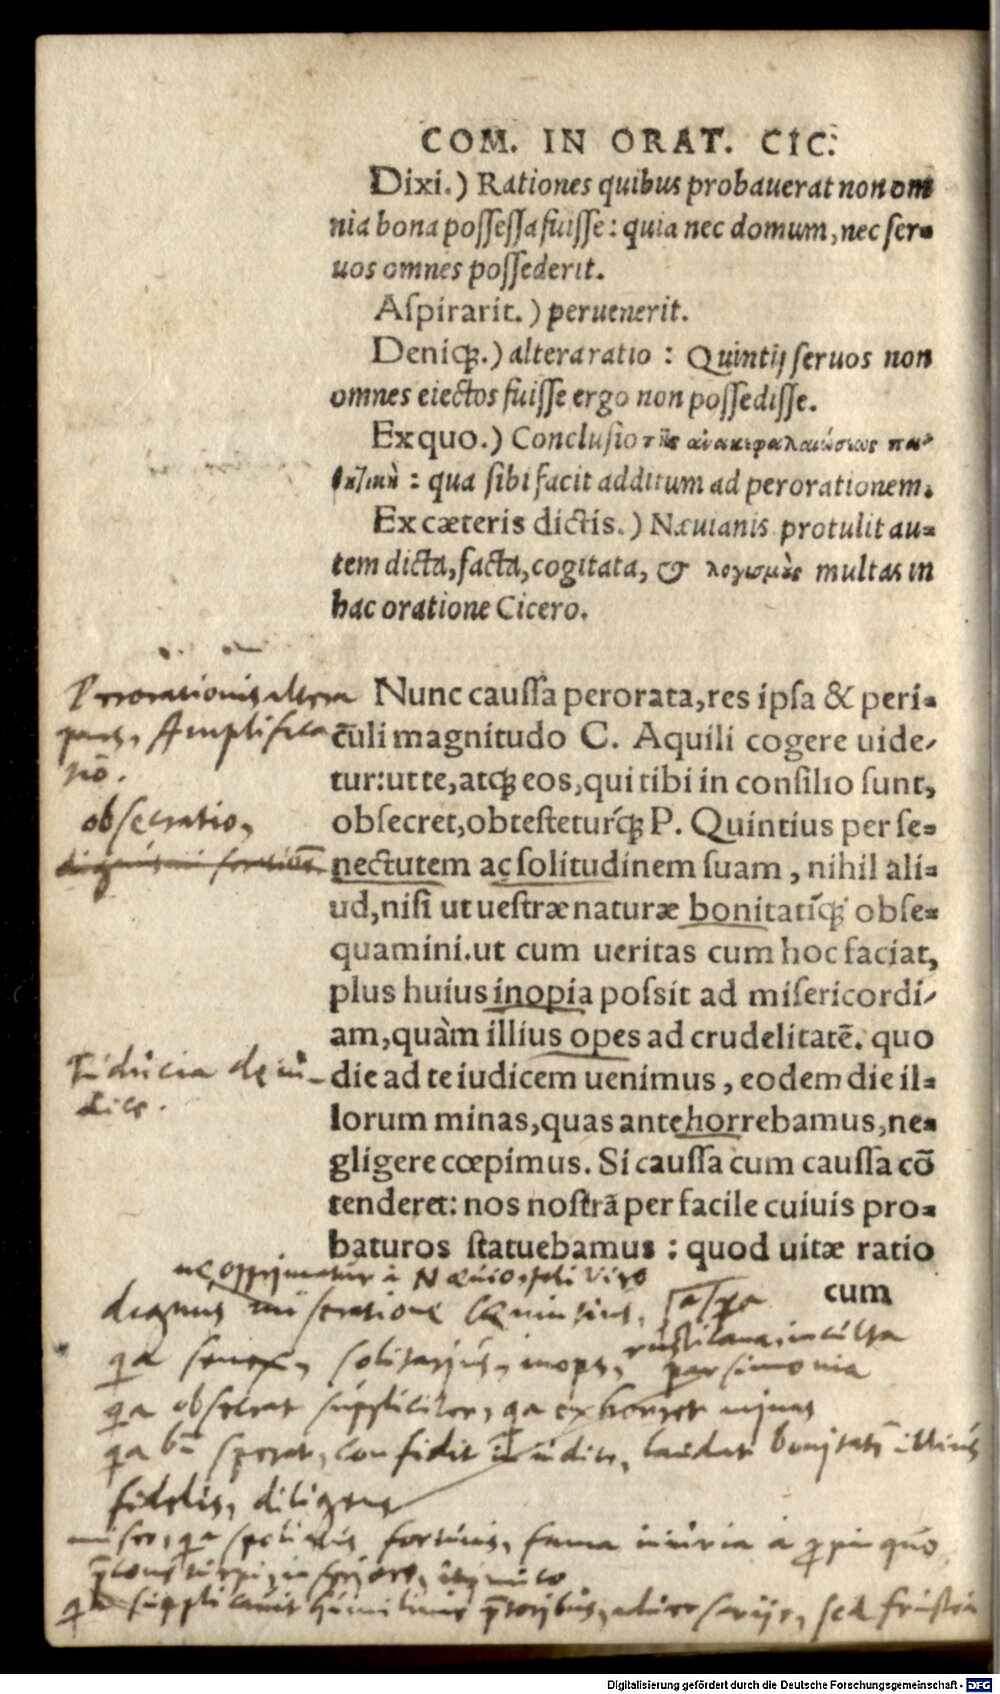 COM. IN ORAT. CIC.
Dixi.) Rationes quibus probauerat non om
nia bona possessa fuisse: quia nec domum, nec ser=
uos omnes possederit.
Aſpirarit.) peruenerit.
Deniqꝫ.) altera ratio : Quintij seruos non
omnes eiectos fuisse ergo non possedisse.
Ex quo.) Conclusio τῆς ἀνακεφαλαιώσεως
: qua sibi facit additum ad perorationem.
Ex cæteris dictis.) Næuianis protulit au=
tem dicta, facta, cogitata, & λογισμὸς multas in
hac oratione Cicero.
Perorationis altera
pars, Amplifica
tiō.
Nunc cauſſa perorata, res ipſa & peri=
culi magnitudo C. Aquili cogere uide/
tur: ut te, atqꝫ eos, qui tibi in conſilio ſunt,
obſecratio,
obſecret, obteſteturq́ꝫ P. Quintius per ſe=
nectutem ac ſolitudinem ſuam, nihil ali=
ud, niſi ut ueſtræ naturæ bonitatiq́ꝫ obſe=
quamini. ut cum ueritas cum hoc faciat,
plus huius inopia poſsit ad miſericordi/
am, quàm illius opes ad crudelitatē. quo
Fidúcia de iú-
dice.
die ad te iudicem uenimus, eodem die il=
lorum minas, quas ante horrebamus, ne=
gligere cœpimus. Si cauſſa cum cauſſa cō
tenderet: nos noſtrā per facile cuiuis pro=
baturos ſtatuebamus : quod uitæ ratio
cum
ne opprimatur à Næuio,
dignus miseratione Quintius,
rusticana, inculta
qa senex, solitarius, inops, parsimonia
qa obsecrat súppliciter, qa exhorret minas
qa sperat, confidit iudici, laudat bonitatē illiús
fidelis, diligens
miser, qa spoliatús fortunis, fama iniuria à propinquo